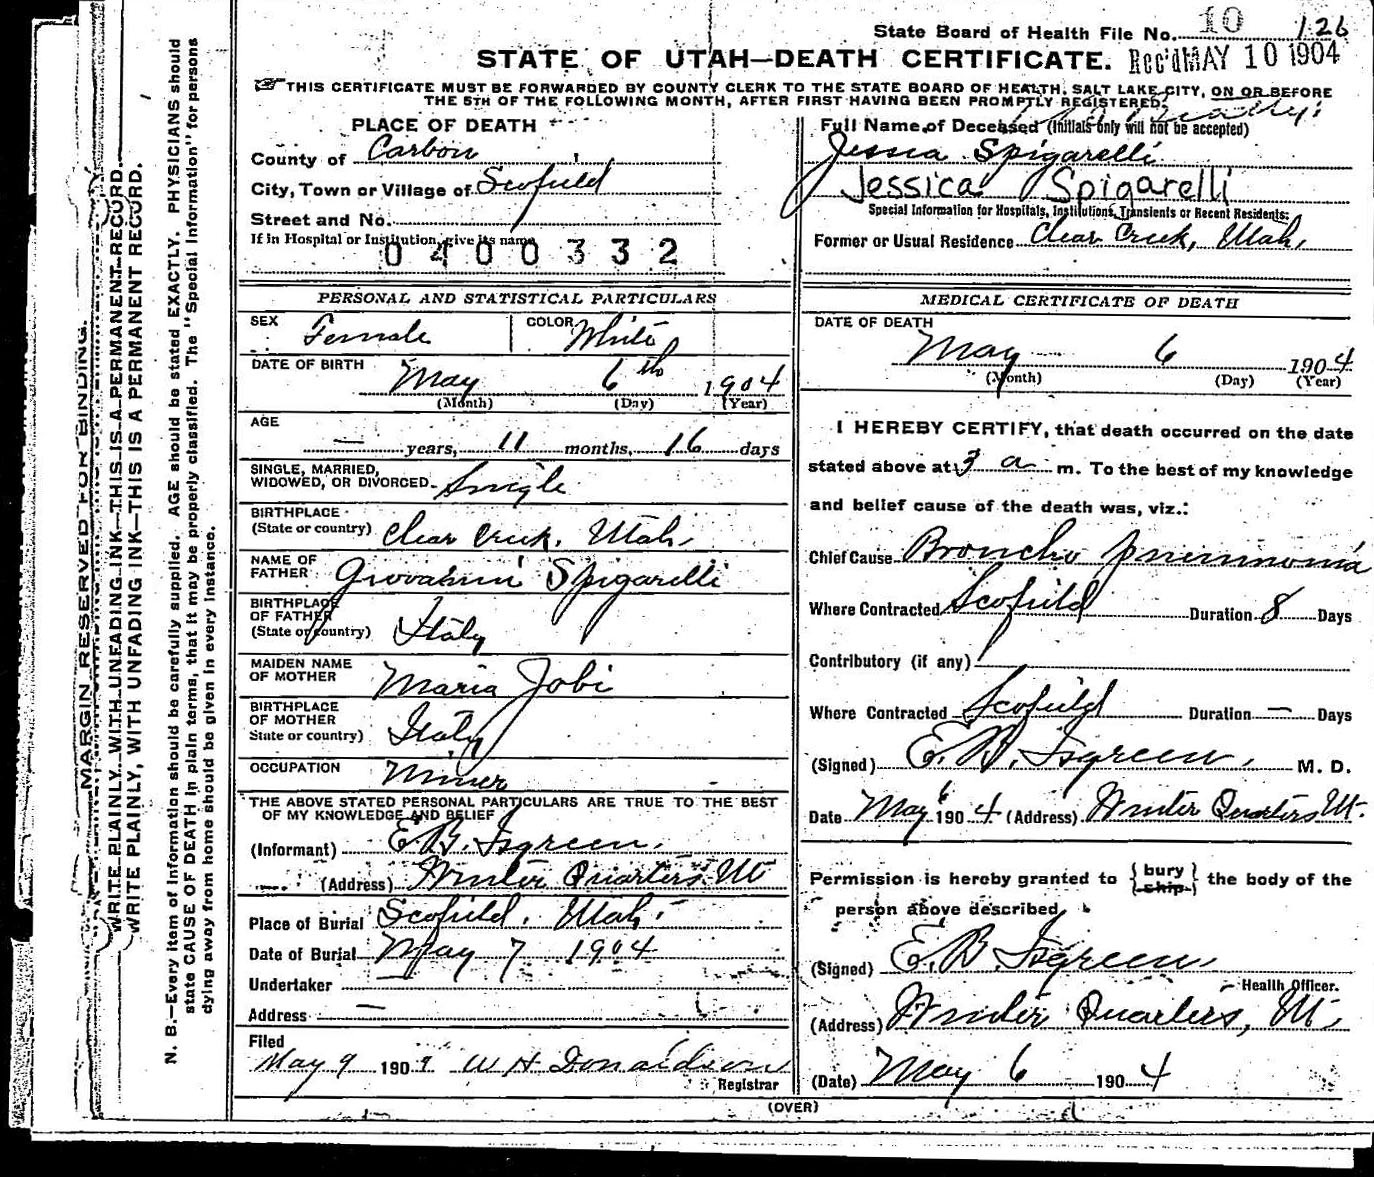 State Board of Health File No. 10 126
STATE OF UTAH—DEATH CERTIFICATE. Rec'd MAY 10 1904
THIS CERTIFICATE MUST BE FORWARDED BY COUNTY CLERK TO THE STATE BOARD OF HEALTH, SALT LAKE CITY, ON OR BEFORE
THE 5TH OF THE FOLLOWING MONTH, AFTER FIRST HAVING BEEN PROMPTLY REGISTERED.
PLACE OF DEATH
County of Carbon
City, Town or Village of Scofield
Street and No.
If in Hospital or Institution, give its name
0400332
Full Name of Deceased (Initials only will not be accepted)
Jessica Spigarelli
Jessica Spigarelli
Special Information for Hospitals, Institutions, Transients or Recent Residents:
Former or Usual Residence Clear Creek, Utah,
PERSONAL AND STATISTICAL PARTICULARS
SEX Female COLOR White
DATE OF BIRTH May 6th 1904
(Month) (Day) (Year)
AGE
— years, 11 months, 16 days
SINGLE, MARRIED,
WIDOWED, OR DIVORCED Single
BIRTHPLACE
(State or country) Clear Creek, Utah
NAME OF
FATHER Giovahini Spigarelli
BIRTHPLACE
OF FATHER
(State or country) Italy
MAIDEN NAME
OF MOTHER Maria Jobi
BIRTHPLACE
OF MOTHER
State or country) Italy
OCCUPATION Miner
THE ABOVE STATED PERSONAL PARTICULARS ARE TRUE TO THE BEST
OF MY KNOWLEDGE AND BELIEF
(Informant) E.B. Isgreen.
(Address) Winter Quarters Ut
Place of Burial Scofield, Utah
Date of Burial May 7 1904
Undertaker
Address —
Filed
May 9 190 W H Donaldson
Registrar
MEDICAL CERTIFICATE OF DEATH
DATE OF DEATH
May 6 1904
(Month) (Day) (Year)
I HEREBY CERTIFY, that death occurred on the date
stated above at 3 a m. To the best of my knowledge
and belief cause of the death was, viz.:
Chief Cause Broncho pneumonia
Where Contracted Scofield Duration 8 Days
Contributory (if any)
Where Contracted Scofield Duration — Days
(Signed) E. B. Isgreen, M. D.
Date May 6 1904 (Address) Winter Quarters Ut.
Permission is hereby granted to {bury ship} the body of the
person above described
(Signed) E. B. Isgreen,
Health Officer.
(Address) Winter Quarters, Ut,
(Date) May 6 1904
(OVER)
MARGIN RESERVED FOR BINDING.
WRITE PLAINLY, WITH UNFADING INK—THIS IS A PERMANENT RECORD.
WRITE PLAINLY, WITH UNFADING INK—THIS IS A PERMANENT RECORD.
N. B.—Every item of information should be carefully supplied. AGE should be stated EXACTLY. PHYSICIANS should
state CAUSE OF DEATH in plain terms, that it may be properly classified. The "Special Information" for persons
dying away from home should be given in every instance.